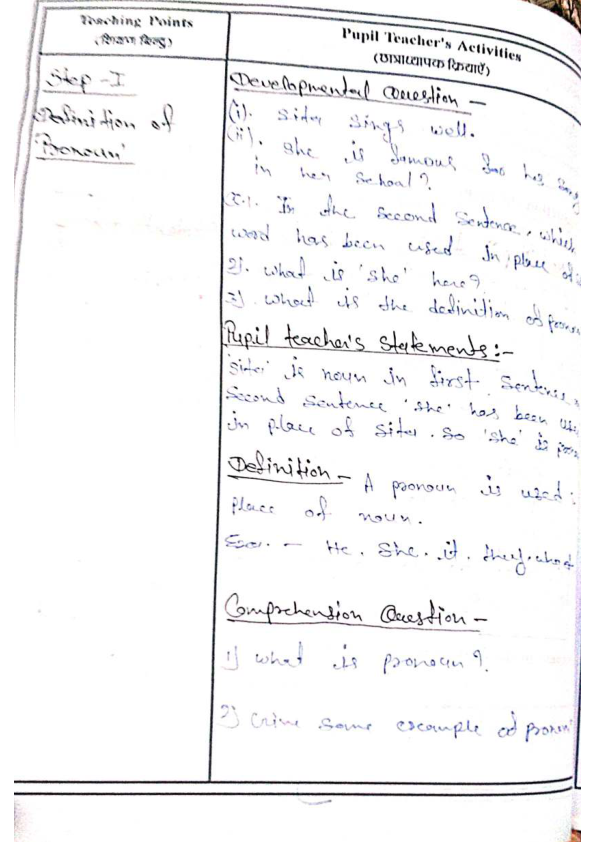 Teaching Points
(शिक्षण बिन्दु)
Step - I
Definition of
'Pronoun'
Pupil Teacher's Activities
(छात्राध्यापक क्रियाएँ)
Developmental Question -
(i). Sita sings well.
(ii). She is famous for her song
in her school?
In the second sentence, which
word has been used in place of
2). What is 'she' here?
3) What is the definition of
Pupil teacher's statements :-
'Sita' is noun in first sentence,
Second sentence 'she' has been
in place of Sita. So 'she' is
Definition - A pronoun is used
place of noun.
Ex. - He. She. it. they.
Comprehension Question -
1) What is pronoun?
2) some example of